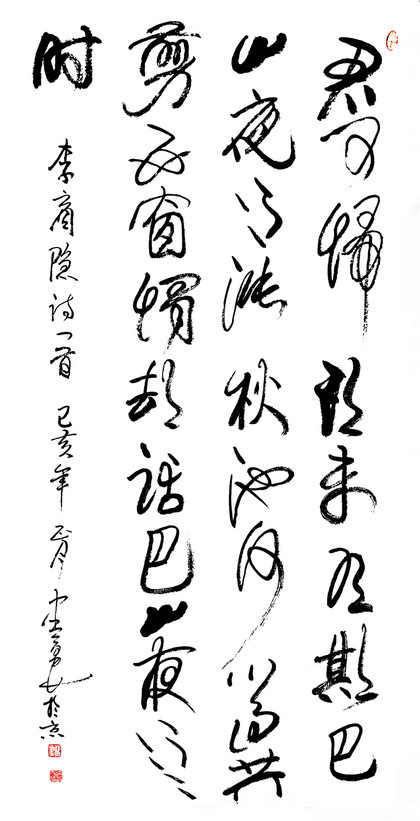 君问歸期未有期巴
山夜雨涨秋池何当共
剪西窗烛却话巴山夜雨
时
李商隐诗一首 己亥年 於京